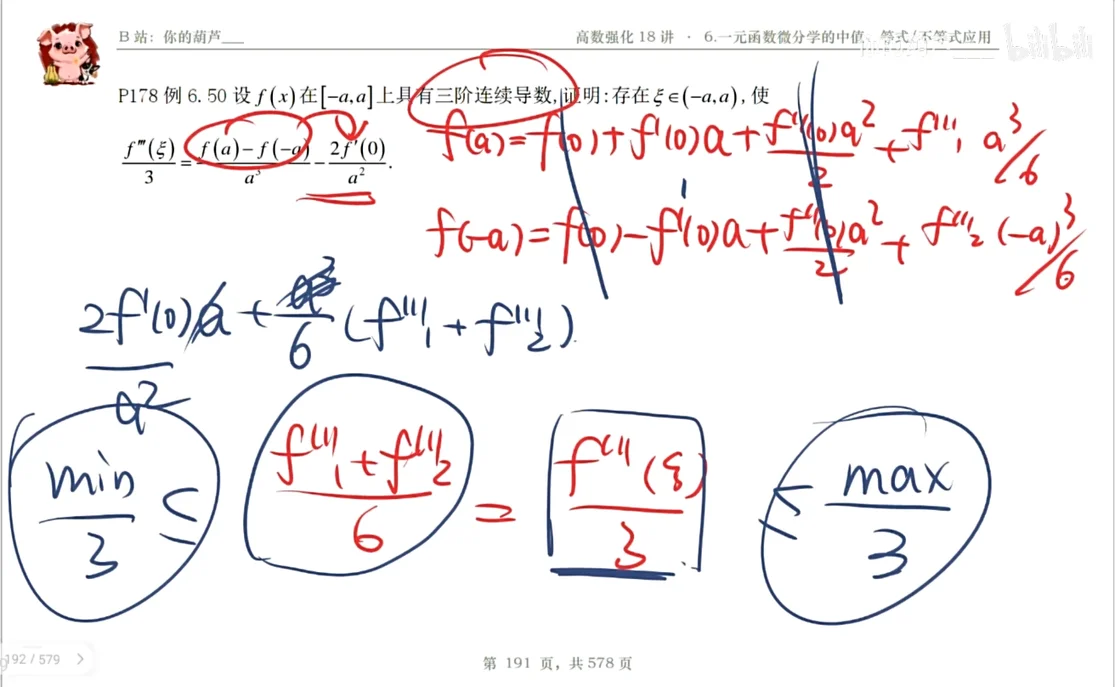 B 站：你的葫芦___
高数强化 18 讲 · 6.一元函数微分学的中值、等式/不等式应用
bilibili
P178 例 6.50 设 f(x) 在[-a,a]上具有三阶连续导数,证明:存在 ξ∈(-a,a), 使
f'''(ξ)/3 = (f(a)-f(-a))/a³ - 2f'(0)/a².
f(a)=f(0)+f'(0)a+f''(0)a²/2+f'''₁ a³/6
f(-a)=f(0)-f'(0)a+f''(0)a²/2+f'''₂ (-a)³/6
2f'(0)a/a² + a³/6 (f'''₁+f'''₂).
min/3 ≤ (f'''₁+f'''₂)/6 = f'''(ξ)/3 ≤ max/3
192 / 579 >
第 191 页，共 578 页